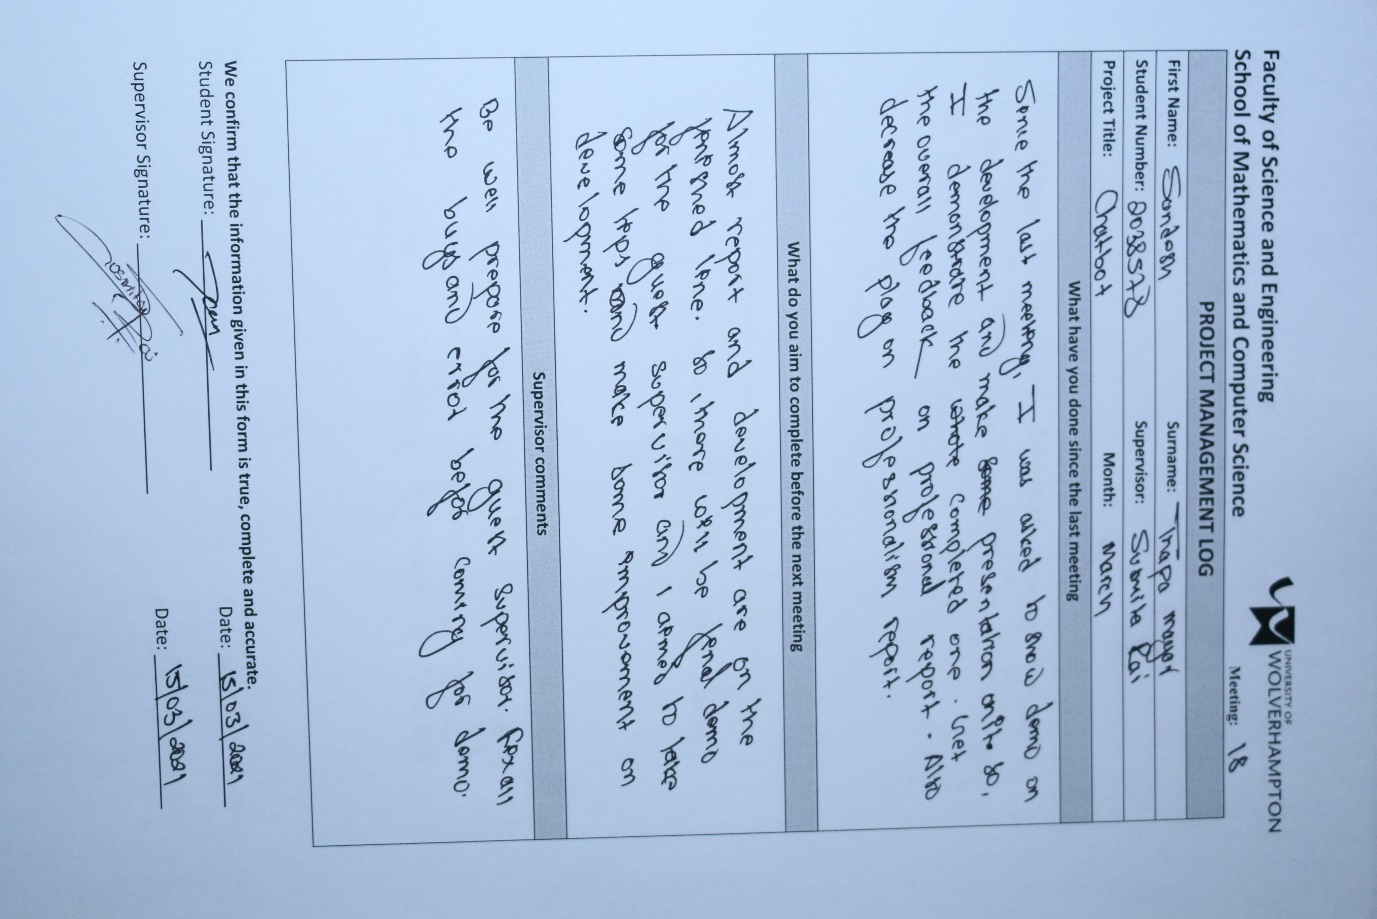 Faculty of Science and Engineering
School of Mathematics and Computer Science
UNIVERSITY OF
WOLVERHAMPTON
Meeting: 18
PROJECT MANAGEMENT LOG
First Name: Sandesh Surname: Thapa magar
Student Number: 2038578 Supervisor: Susmita Rai
Project Title: Chatbot Month: March
What have you done since the last meeting
Sence the last meeting, I was asked to show demo on
the development and make some presentation on it. So,
I demonstrate the whole completed one. Get
the overall feedback on professional report. Also
decrease the plag on professionalism report.
What do you aim to complete before the next meeting
Almost report and development are on the
finished line. So, there will be final demo
for the guest supervisor and I aimed to take
some tips and make some improvement on
development.
Supervisor comments
Be well prepare for the guest supervisor. Fix all
the bugs and error before coming for demo.
We confirm that the information given in this form is true, complete and accurate.
Student Signature: Date: 15/03/2021
Supervisor Signature: Date: 15/03/2021